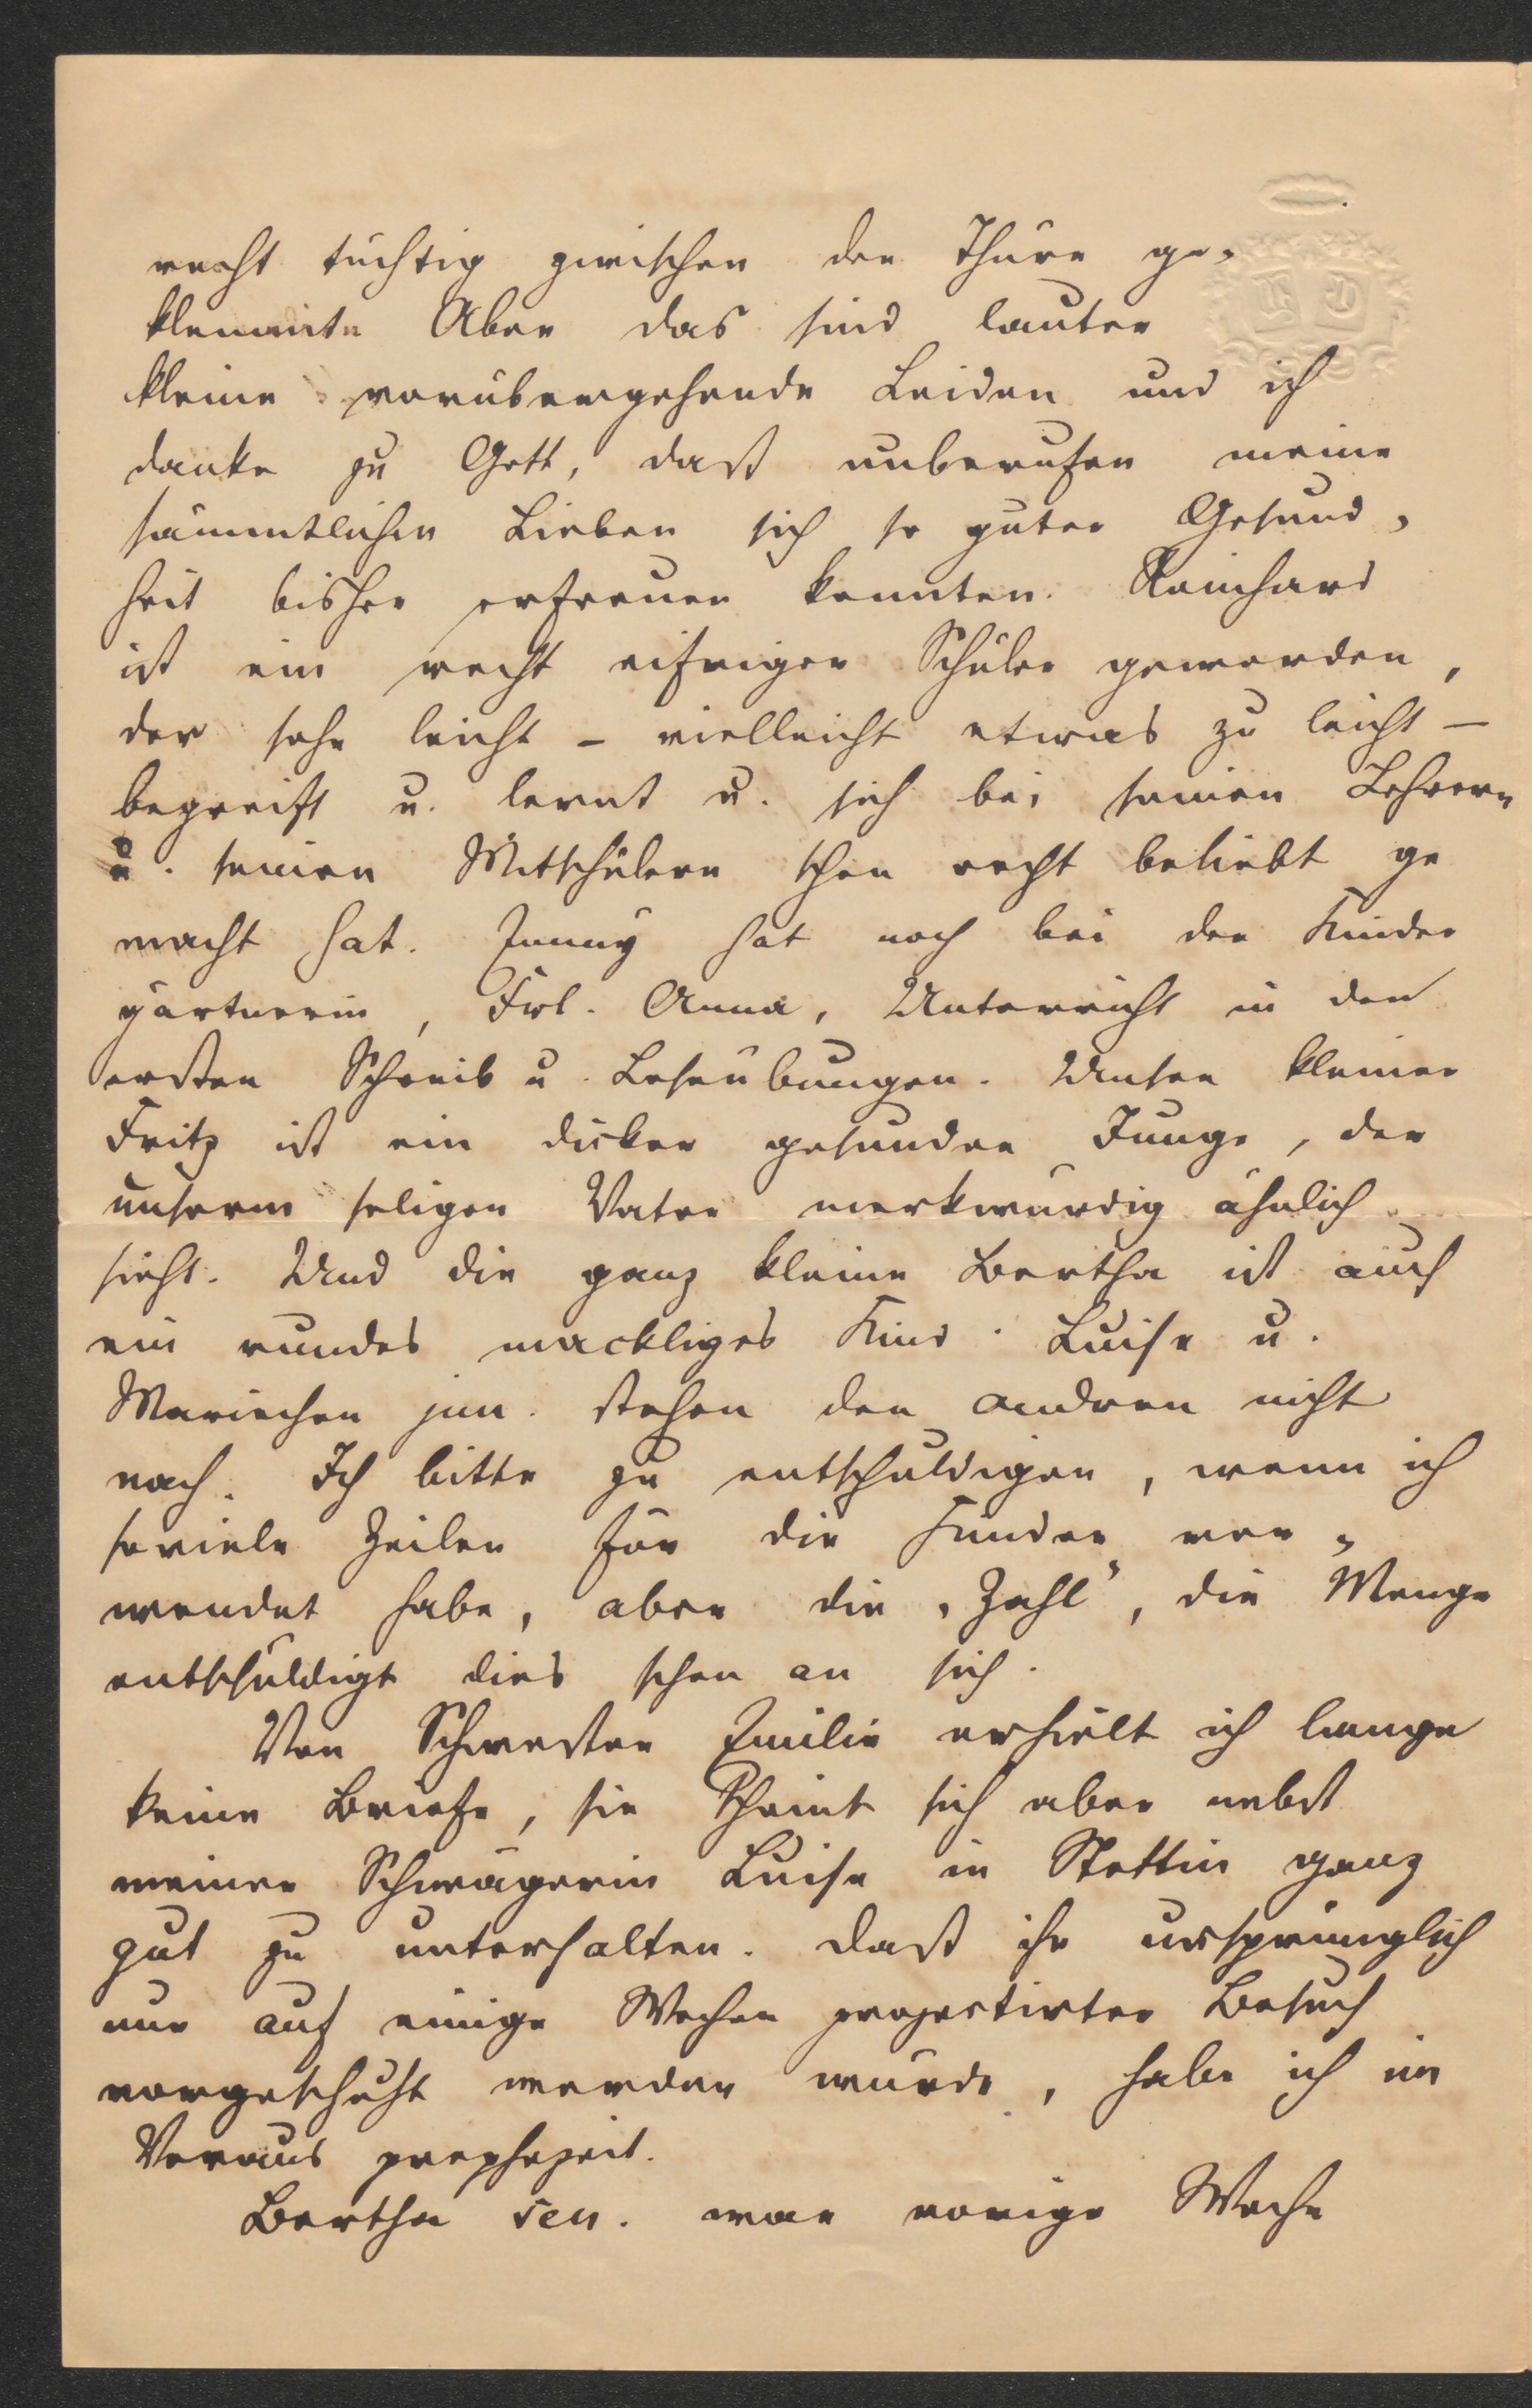 recht tüchtig zwischen der Thüre ge-
klemmt. Aber das sind lauter
kleine vorübergehende Leiden und ich
danke zu Gott, daß unberufen meine
sämmtlichen Lieben sich so guter Gesund-
heit bisher erfreuen konnten. Reinhard
ist ein recht eifriger Schüler geworden,
der sehr leicht – vielleicht etwas zu leicht –
begreift u. lernt u. sich bei seinen Lehrern
u. seinen Mitschülern schon recht beliebt ge
macht hat. Jenny hat noch bei der Kinder
gärtnerin, Frl. Anna, Unterricht in den
ersten Schreib u. Leseübungen. Unser kleiner
Fritz ist ein dicker gesunder Junge, der
unserm seligen Vater merkwürdig ähnlich
sieht. Und die ganz kleine Bertha ist auch
ein rundes mackliges Kind. Luise u.
Mariechen jun. stehen den andren nicht
nach. Ich bitte zu entschuldigen, wenn ich
soviele Zeilen für die Kinder ver-
wendet habe, aber die „Zahl", die Menge
entschuldigt dies schon an sich.
Von Schwester Emilie erhielt ich lange
keine Briefe, sie scheint sich aber nebst
meiner Schwägerin Luise in Stettin ganz
gut zu unterhalten. Daß ihr ursprünglich
nur auf einige Wochen projectirter Besuch
vorgeschuht werden würde, habe ich im
Voraus prophezeit.
Bertha sen. war vorige Woche